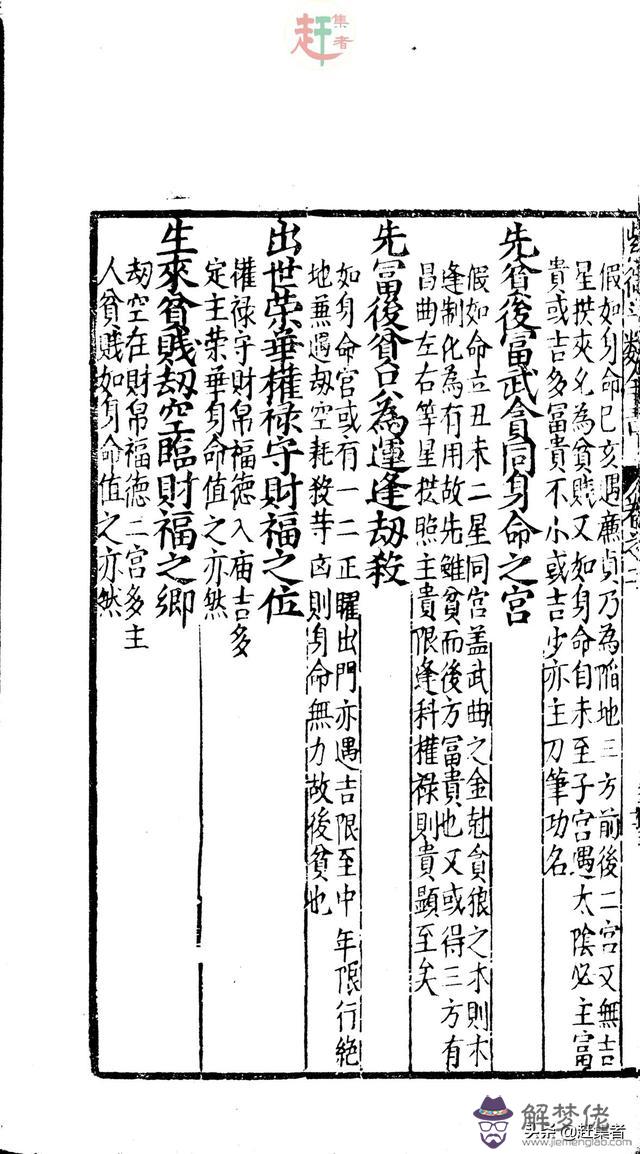 赶集者
假如身命巳亥遇廉貞乃為陷地三方前後二宮又無吉
星拱夾必為貧賤又如身命自未至子宮遇太陰必主富
貴或吉多富貴不小或吉少亦主刀筆功名
先貧後富武貪同身命之宮
假如命立丑未二星同宮盖武曲之金尅貪狼之木則木
逢制化為有用故先雖貧而後方富貴也又或得三方有
昌曲左右等星拱照主貴限逢科權禄則貴顯至矣
先富後貧只為運逢劫殺
如身命宮或有一二正曜出門亦遇吉限至中年限行絕
地兼遇劫空耗殺等凶則身命無力故後貧也
出世荣華權禄守財福之位
權禄守財帛福德入庙吉多
定主荣華身命值之亦然
生來貧賤劫空臨財福之鄉
劫空在財帛福德二宮多主
人貧贱如身命值之亦然
解梦佬
www.jiemenglao1.com
头条@赶集者